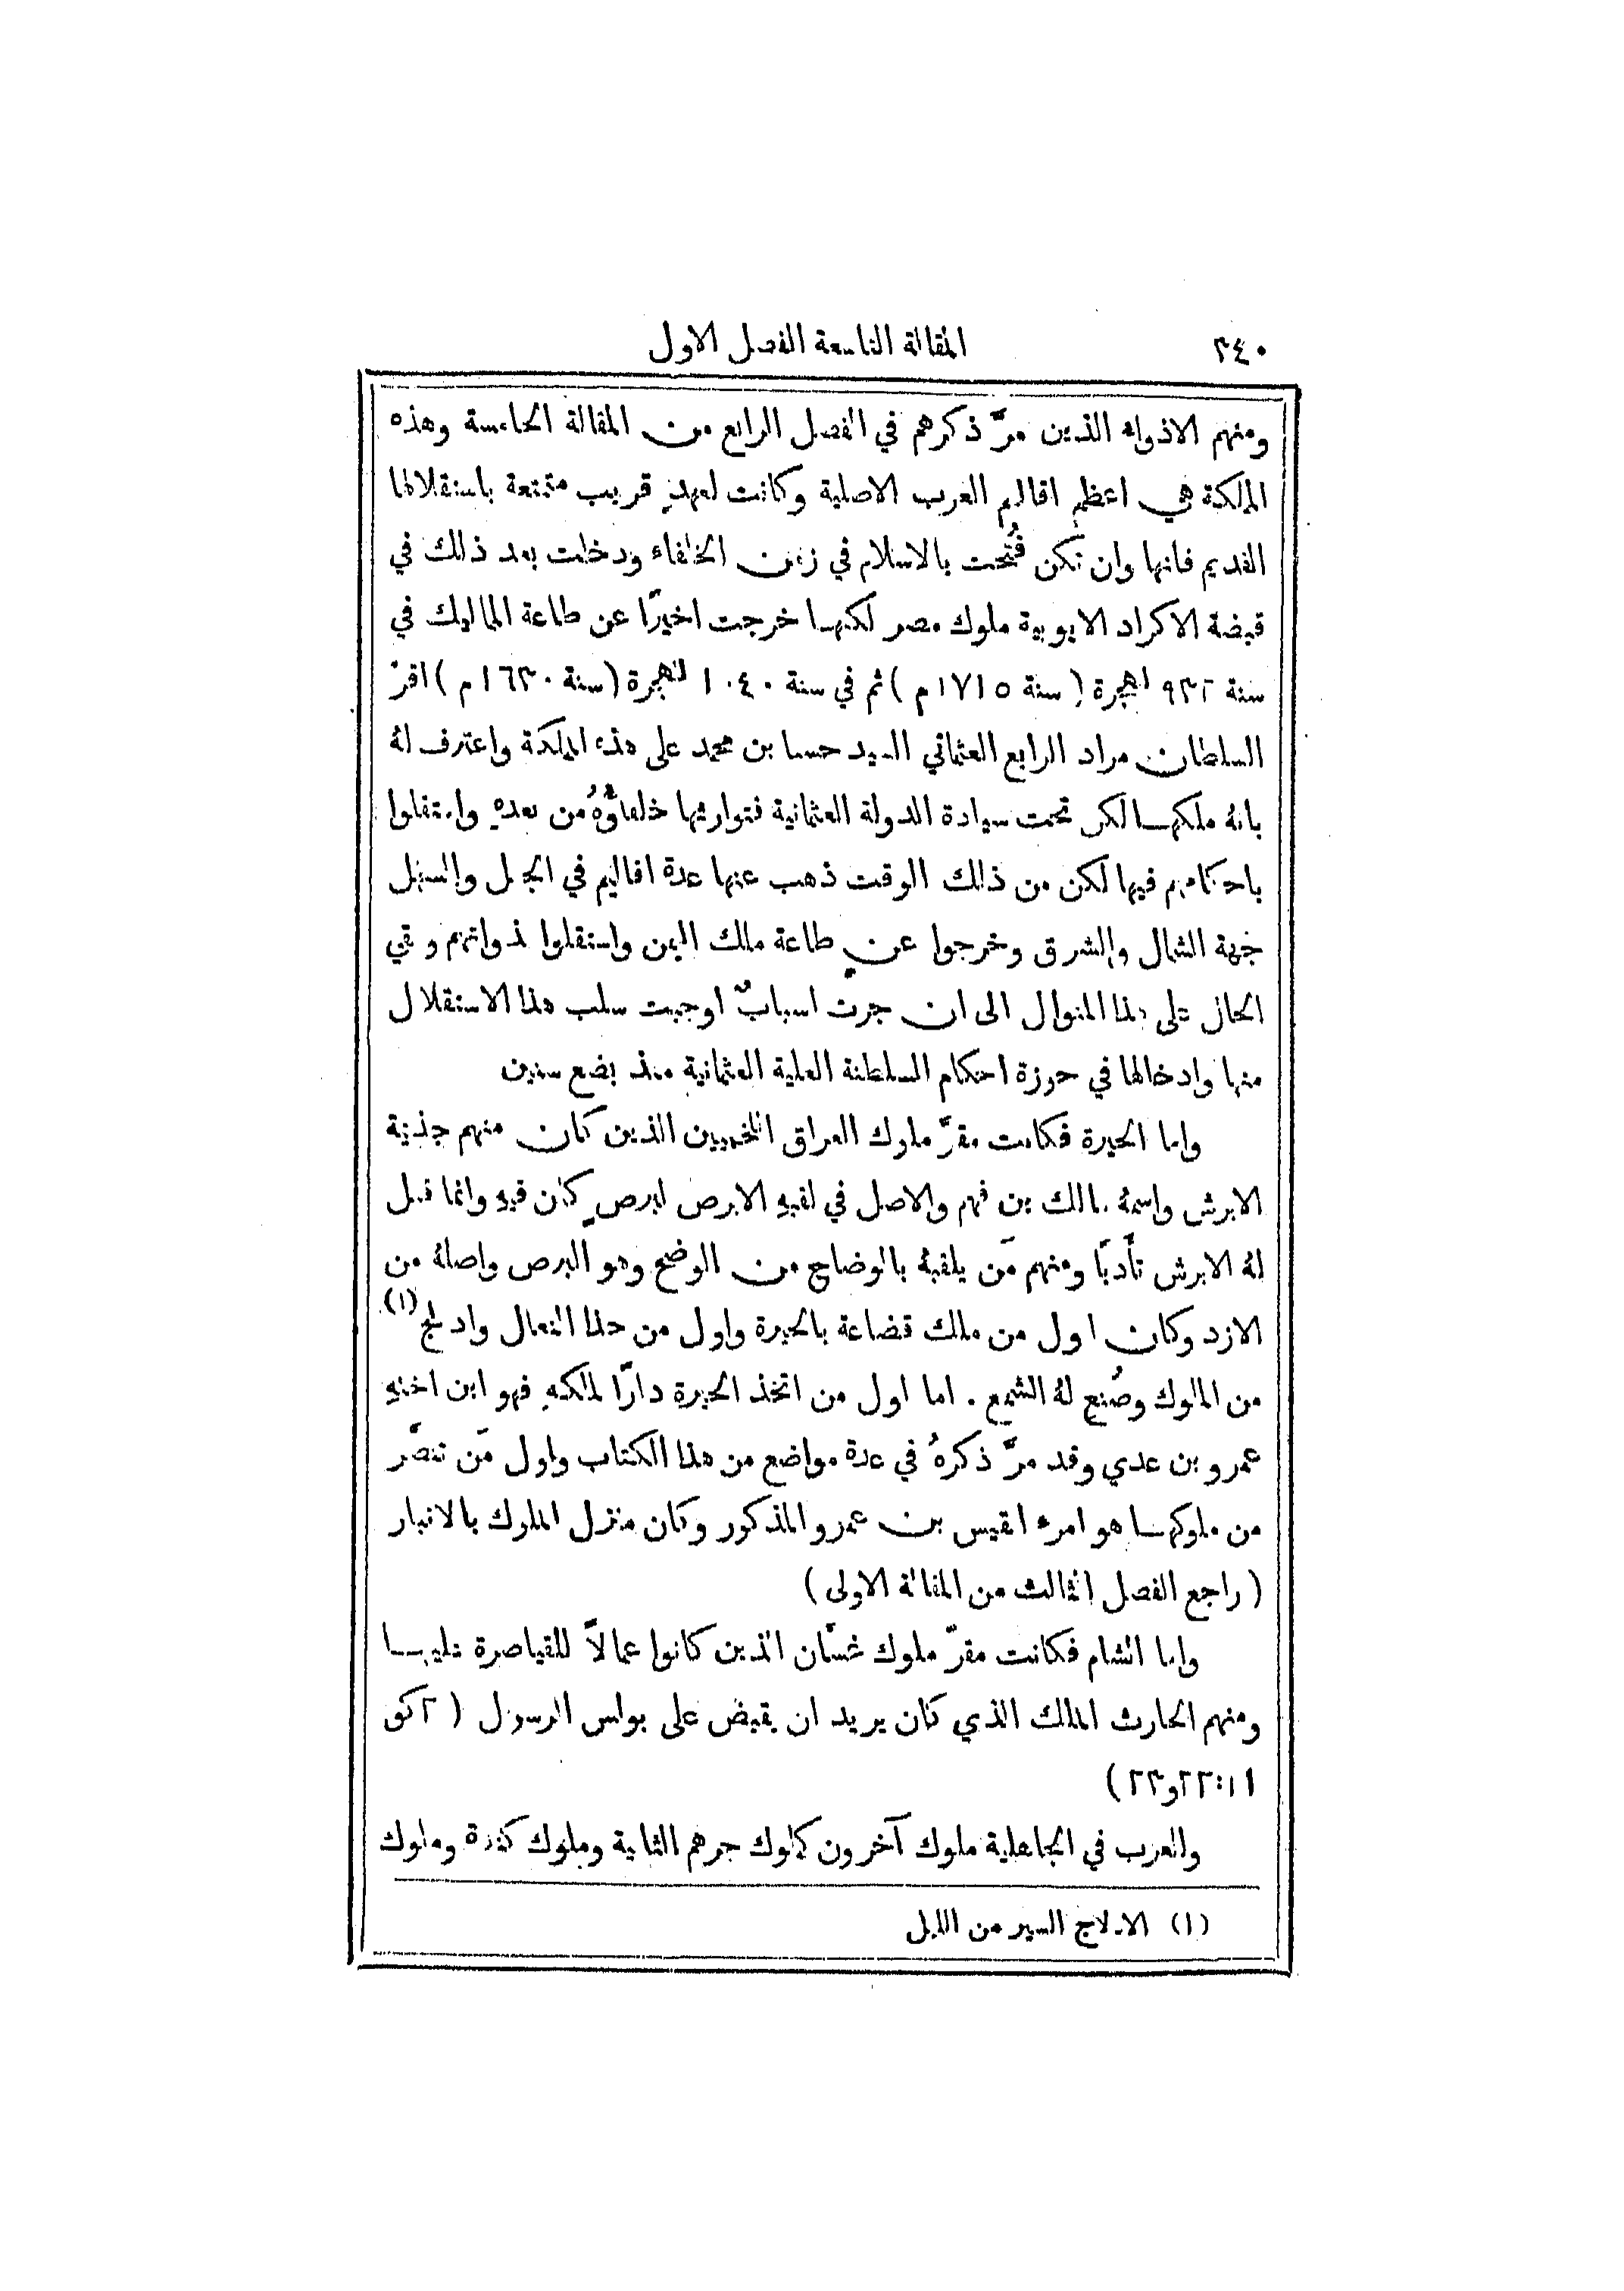 ٣٤٠ المقالة التاسعة الفصل الاول
ومنهم الاذواء الذين مرَّ ذكرهم في الفصل الرابع من المقالة الخامسة وهذه
المملكة هي اعظم اقاليم العرب الاصلية وكانت لعهدٍ قريب متمتعة باستقلالها
القديم فانها وان تكن فُتحت بالاسلام في زمن الخلفاء ودخلت بعد ذلك في
قبضة الاكراد الايوبية ملوك مصر لكنها خرجت اخيرًا عن طاعة المماليك في
سنة ٩٣٢ للهجرة (سنة ١٧١٥م) ثم في سنة ١٠٤٠ للهجرة (سنة ١٦٣٠م) اقرَّ
السلطان مراد الرابع العثماني السيد حسما بن محمد على هذه المملكة واعترف لهُ
بانهُ ملكها لكن تحت سيادة الدولة العثمانية فتوارثها خلفاؤُهُ من بعدهِ واستقلوا
باحكامهم فيها لكن من ذلك الوقت ذهب عنها عدة اقاليم في الجبل والسهل
جهة الشمال والشرق وخرجوا عن طاعة ملك اليمن واستقلوا بذواتهم وبقي
الحال على هذا المنوال الى ان جرت اسبابٌ اوجبت سلب هذا الاستقلال
منها وادخالها في حوزة احكام السلطنة العلية العثمانية منذ بضع سنين
واما الحيرة فكانت مقرَّ ملوك العراق اللخميين الذين كان منهم جذيمة
الابرش واسمهُ مالك بن فهم والاصل في لقبهِ الابرص لبرصٍ كان فيهِ وانما قيل
لهُ الابرش تأَدبًا ومنهم مَن يلقبهُ بالوضاح من الوضح وهو البرص واصلهُ من
الازد وكان اول من ملك قضاعة بالحيرة واول من حذا النعال وادلج (١)
من الملوك وصُنع لهُ الشمع . اما اول من اتخذ الحيرة دارًا لملكهِ فهو ابن اختهِ
عمرو بن عدي وقد مرَّ ذكرهُ في عدة مواضع من هذا الكتاب واول مَن تنصَّر
من ملوكها هو امرء القيس بن عمرو المذكور وكان منزل الملوك بالانبار
(راجع الفصل الثالث من المقالة الاولى)
واما الشام فكانت مقرَّ ملوك غسَّان الذين كانوا عمالاً للقياصرة عليها
ومنهم الحارث الملك الذي كان يريد ان يقبض على بولس الرسول (٢ كو
١١:٣٢و٣٣)
والعرب في الجاهلية ملوك آخرون كملوك جرهم الثانية وملوك كندة وملوك
(١) الادلاج السير من الليل